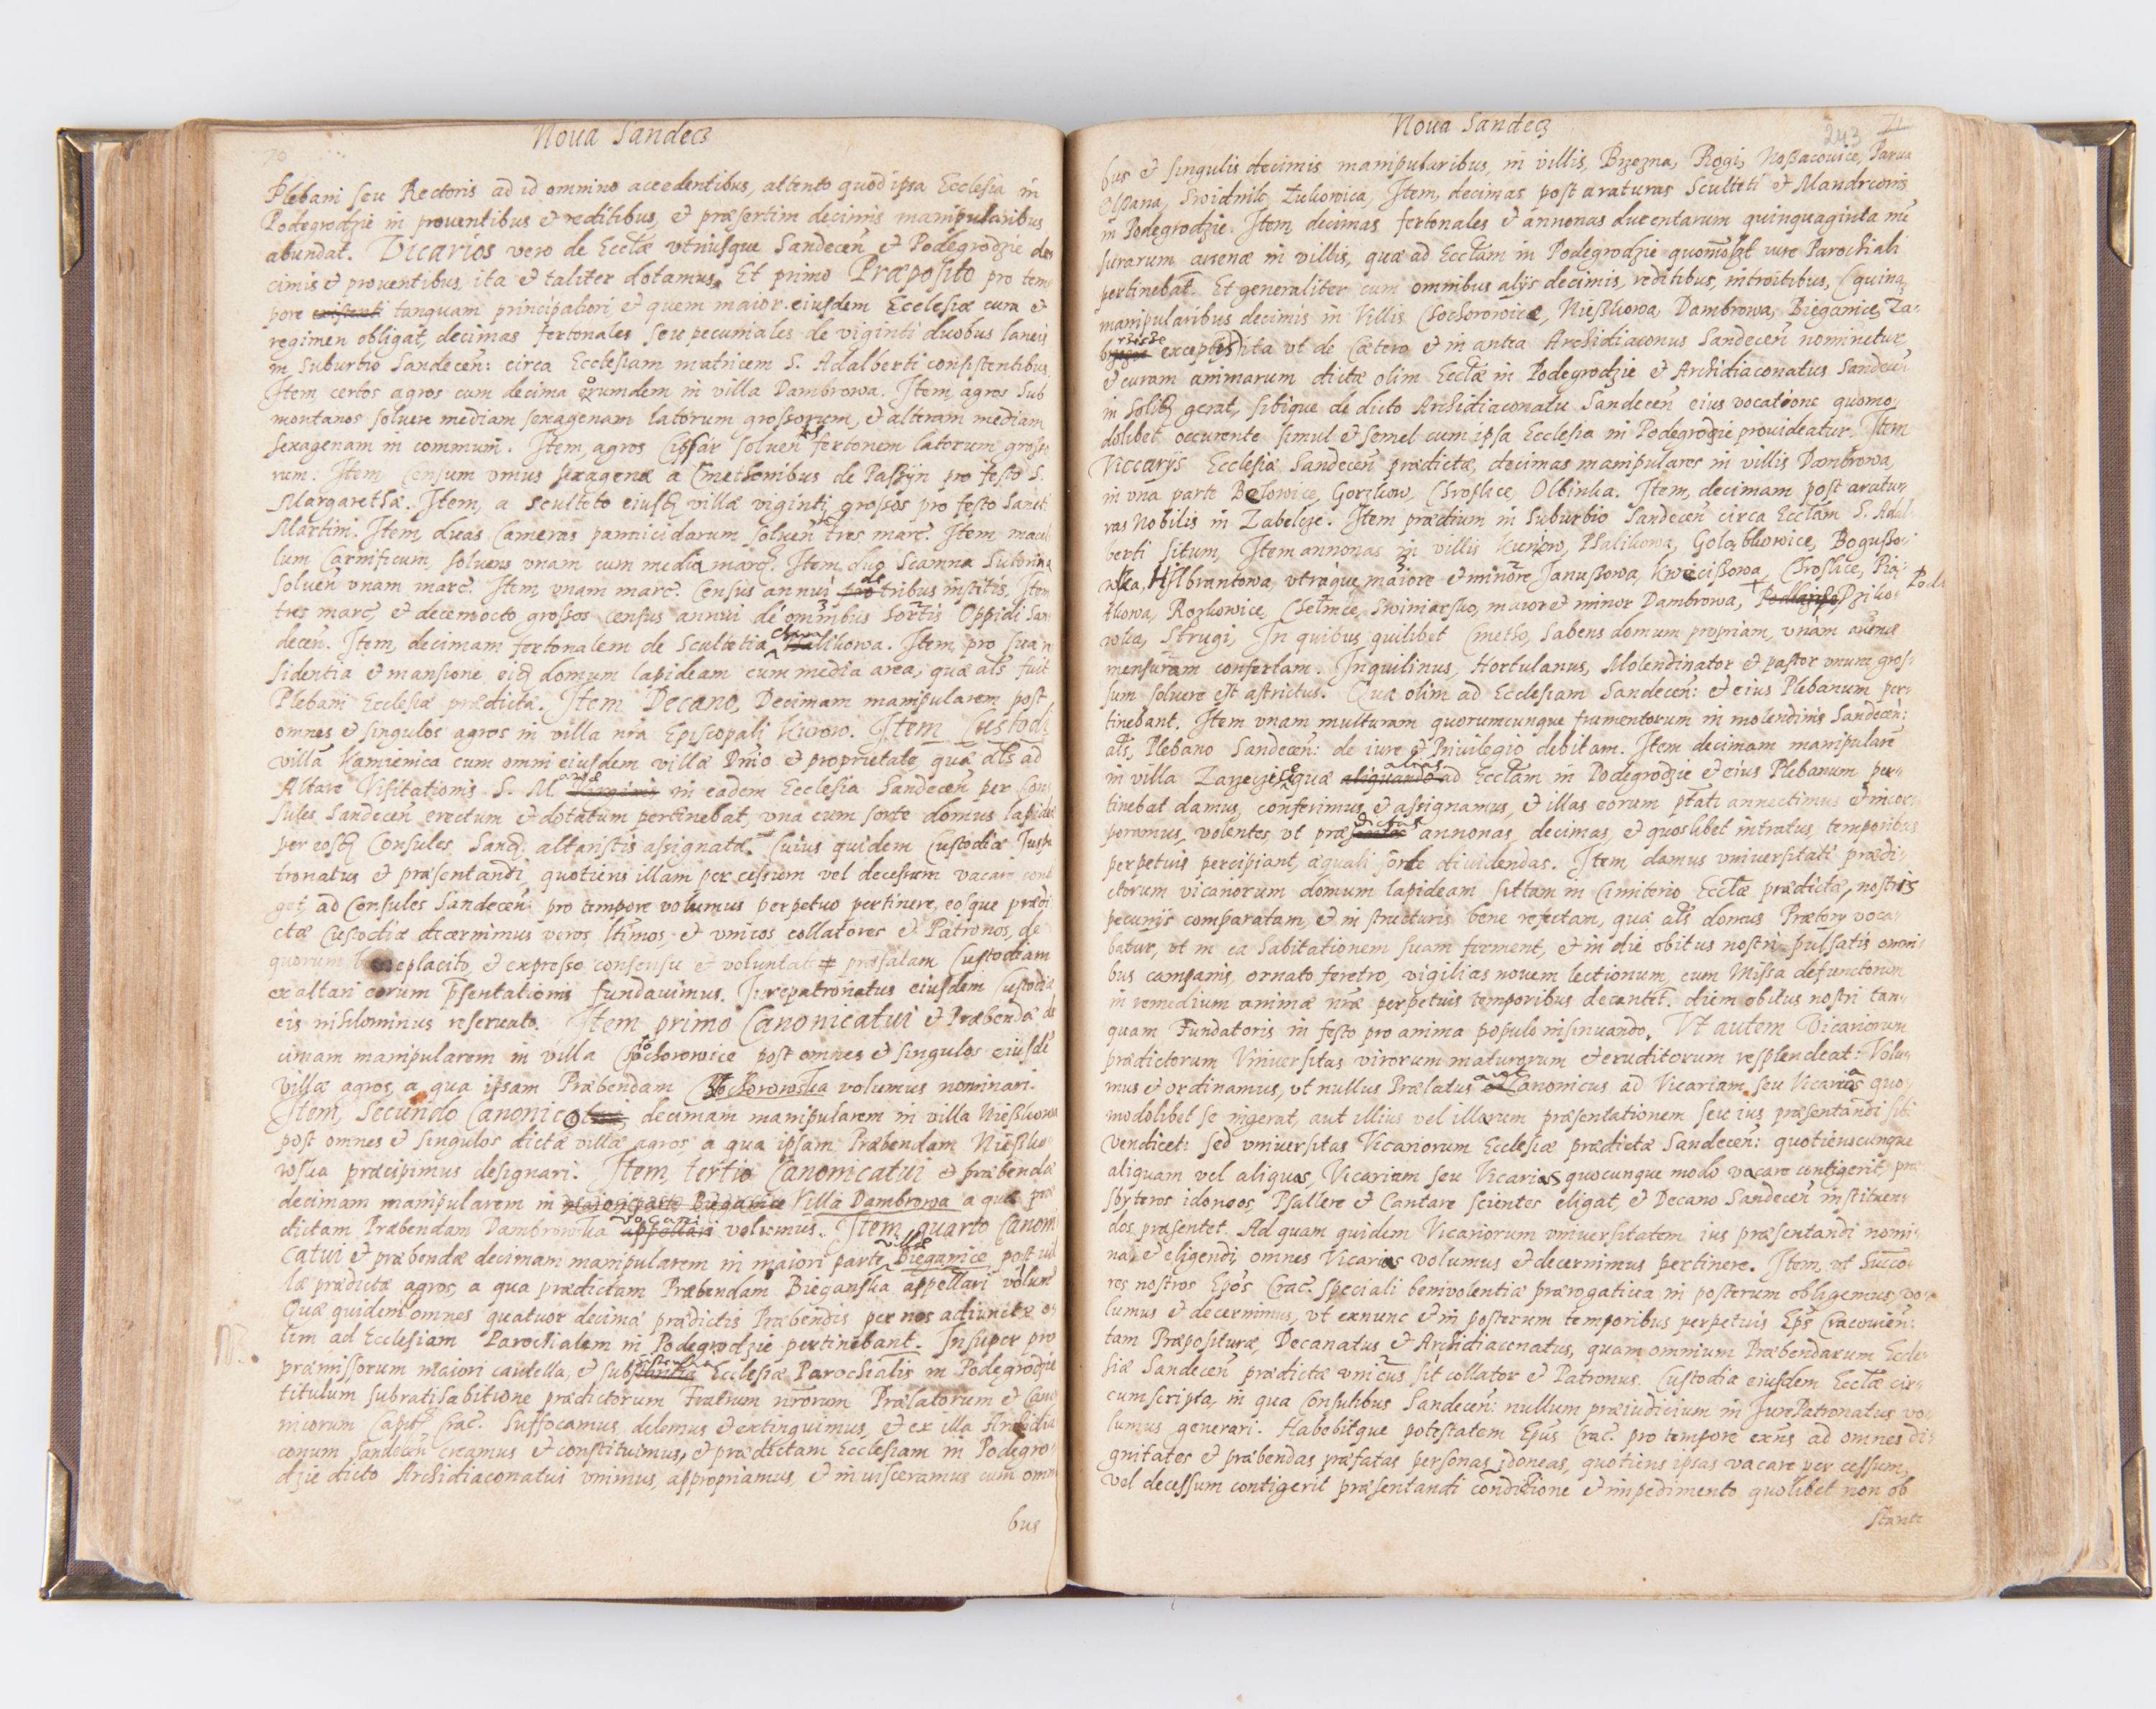 Noua Sandecz
70
Plebani seu Rectoris ad id omnino accedentibus, attento quod ipsa Ecclesia in
Podegrodzie in prouentibus et reditibus, et præsertim decimis manipularibus
abundat. Vicarios vero de Ecctæ vtriusque Sandeceñ et Podegrodzie de
cimis et prouentibus, ita et taliter dotamus. Et primo Præposito pro tem
pore existenti tanquam principaliori, et quem maior eiusdem Ecclesiæ cura et
regimen obligat, decimas fertonales seu pecuniales de viginti duobus laneis
in Suburbio Sandeceñ: circa Ecclesiam matricem S. Adalberti consistentibus,
Item certos agros cum decima eorumdem in villa Dambrowa. Item, agros Sub
montanos soluere mediam sexagenam latorum grossorum, et alteram mediam
sexagenam in communi. Item, agros soluen fertonem latorum grosso
rum. Item, Censum vnius sexagenæ a Cmethonibus de Paszyn pro festo S.
Margarethæ. Item, a Sculteto eiusdẽ villæ viginti grossos pro festo Sancti
Martini. Item, duas Cameras pannicidarum soluen tres marc. Item macel
lum Carnificum, soluens vnam cum media marc. Item, duo Scamna Sutorum
soluen vnam marc. Item vnam marc. Census annui pro de tribus institis, Item
tres marc, et decemocto grossos census annui de omnibus sortis Oppidi San
deceñ. Item, decimam fertonalem de Scultetia Item, pro sua re
sidentia et mansione domum lapideam cum media area, quæ als fuit
Plebani Ecclesiæ prædictæ. Item Decano, Decimam manipularem post
omnes et singulos agros in villa nrã Episcopali Kurow. Item Custodi
villã Kamienica cum omni eiusdem villæ Dnio et proprietate, quæ als ad
Altare Visitationis S. M. Virginis in eadem Ecclesia Sandeceñ per Con
sules Sandeceñ erectum et dotatum pertinebat, vna cum sorte domus lapideæ
per eosdẽ Consules altaristis assignatæ. Cuius quidem Custodiæ Iuspa
tronatus et præsentandi, quotiens illam per cessum vel decessum vacare conti
get, ad Consules Sandeceñ: pro tempore volumus perpetuo pertinere, eosque prædi
ctæ Custodiæ decernimus veros ltimos, et vnicos collatores et Patronos, de
quorum beneplacito, et expresso consensu et voluntate præfatam Custodiam
ex altari eorum pñsentationis fundauimus. Iurepatronatus eiusdem Custodiæ
eis nihilominus reseruato. Item primo Canonicatui et Præbendæ de
cimam manipularem in villa Chochorowice post omnes et singulos eiusdẽ
villæ agros, a qua ipsam Præbendam Chochorowska volumus nominari.
Item, Secundo Canonico decimam manipularem in villa Nieszkowa
post omnes et singulos dictæ villæ agros, a qua ipsam Præbendam Nieszko
wska præcipimus designari. Item, tertio Canonicatui et præbendæ
decimam manipularem in maiori parte Biegonice Villa Dambrowa a qua præ
dictam Præbendam Dambrowska vocari appellari volumus. Item quarto Canoni
catui et præbendæ decimam manipularem in maiori parte villæ Bieganice post vil
læ prædictæ agros, a qua prædictam Præbendam Bieganska appellari volum
Quæ quidem omnes quatuor decimæ prædictis Præbendis per nos adiunctæ o
lim ad Ecclesiam Parochialem in Podegrodzie pertinebant. Insuper pro
præmissorum maiori cautella, et Ecclesiæ Parochialis in Podegrodzie
titulum subratihabitione prædictorum Fratrum nrorum Prælatorum et Cano
nicorum Capit. Crac. Suffocamus, delemus et extinguimus, et ex illa Archidia
conum Sandeceñ creamus et constituimus, et prædictam Ecclesiam in Podegro
dzie dicto Archidiaconatui vnimus, appropriamus, et inuisceramus cum omni
bus
Noua Sandecz
243 71
bus et singulis decimis manipularibus, in villis, Brzezna, Rogi, Noszacouice, Parua
Olszana, Swidnik, Zukowica, Item, decimas post araturas Sculteti et Mandrconis
in Podegrodzie. Item, decimas fertonales et annonas ducentarum quinquaginta mẽ
surarum auenæ in villis, quæ ad Ecctam in Podegrodzie quomolbt iure Parochiali
pertinebat. Et generaliter cum omnibus alijs decimis, reditibus, introitibus, (quinq
manipularibus decimis in Villis Chochorowicæ, Nieszkowa, Dambrowa, Biegonice, Za-
exceptis) ita vt de Cætero et in antea Archidiaconus Sandeceñ nominetur
et curam animarum dictæ olim Ecctæ in Podegrodzie et Archidiaconatus Sandeceñ
in solidũ gerat, sibique de dicto Archidiaconatu Sandeceñ eius vocatione quomo-
dolibet occurente simul et semel cum ipsa Ecclesia in Podegrodzie prouideatur. Item
Viccarijs Ecclesiæ Sandeceñ prædictæ, decimas manipulares in villis Dambrowa,
in vna parte Belowice, Gorzkow, Chroslice, Olbinka. Item, decimam post aratu
ras Nobilis in Zabelcze. Item prædium in Suburbio Sandeceñ circa Ecctam S. Adal
berti situm, Item annonas in villis Kurow, Psalikowa, Golabkowice, Bogusso-
wka, Hilbrantowa, vtraque maiore et minore, Janussowa, Kwiecissowa, Chroslice, Pią-
tkowa, Rozkowice, Chelmice, Swiniarsko, maior et minor Dambrowa, Dziko- Poda
wka, Strugi, In quibus quilibet Cmetho, habens domum propriam, vnam auenæ
mensuram confertam. Inquilinus, Hortulanus, Molendinator et pastor vnum gros-
sum soluere est astrictus. Quæ olim ad Ecclesiam Sandeceñ: et eius Plebanum per-
tinebant. Item vnam multuram quorumcunque frumentorum in molendinis Sandeceñ:
als, Plebano Sandeceñ: de iure et Priuilegio debitam. Item decimam manipularẽ
in villa quæ aliquando alias ad Ecctam in Podegrodzie et eius Plebanum per-
tinebat damus, conferimus et assignamus, et illas eorum ptati annectimus et incor-
poramus, volentes, vt prædictas annonas, decimas, et quoslibet intratus, temporibus
perpetuis percipiant, æquali sorte diuidendas. Item damus vniuersitati prædi-
ctorum vicariorum domum lapideam sittam in Cimiterio Ecctæ prædictæ, nostris
pecunijs comparatam, et in structuris bene refectam, quæ als domus Prætory voca-
batur, vt in ea habitationem suam forment, et in die obitus nostri pulsatis omni-
bus campanis, ornato feretro, vigilias nouem lectionum, cum Missa defunctorum
in remedium animæ nræ perpetuis temporibus decantet. diem obitus nostri tan-
quam Fundatoris in festo pro anima populo insinuando. Vt autem Vicariorum
prædictorum Vniuersitas virorum maturorum et eruditorum resplendeat: Volu-
mus et ordinamus, vt nullus Prælatus aut Canonicus ad Vicariam, seu Vicarias quo-
modolibet se ingerat, aut illius vel illarum præsentationem seu ius præsentandi sibi
vendicet: sed vniuersitas Vicariorum Ecclesiæ prædictæ Sandeceñ: quotienscunque
aliquam vel aliquas, Vicariam seu Vicarias quocunque modo vacare contigerit, præ
sbyteros idoneos, Psallere et Cantare scientes eligat, et Decano Sandeceñ instituen
dos præsentet. Ad quam quidem Vicariorum vniuersitatem ius præsentandi nomi-
na, et eligendi, omnes Vicarias volumus et decernimus pertinere. Item, vt Succo-
res nostros Epõs Crac. speciali beniuolentiæ prærogatiua in posterum obligemus, vo-
lumus et decernimus, vt exnunc et in posterum temporibus perpetuis Eps Cracouien:
tam Præposituræ, Decanatus et Archidiaconatus, quam omnium Præbendarum Eccle-
siæ Sandeceñ prædictæ vnicus sit collator et Patronus. Custodia eiusdem Ecctæ cir-
cumscripta, in qua Consulibus Sandeceñ: nullum præiudicium in JurePatronatus vo-
lumus generari. Habebitque potestatem Epũs Crac. pro tempore exñs ad omnes di-
gnitates et præbendas præfatas personas jdoneas, quotiens ipsas vacare per cessum,
vel decessum contigerit præsentandi conditione et impedimento quolibet non ob
stante